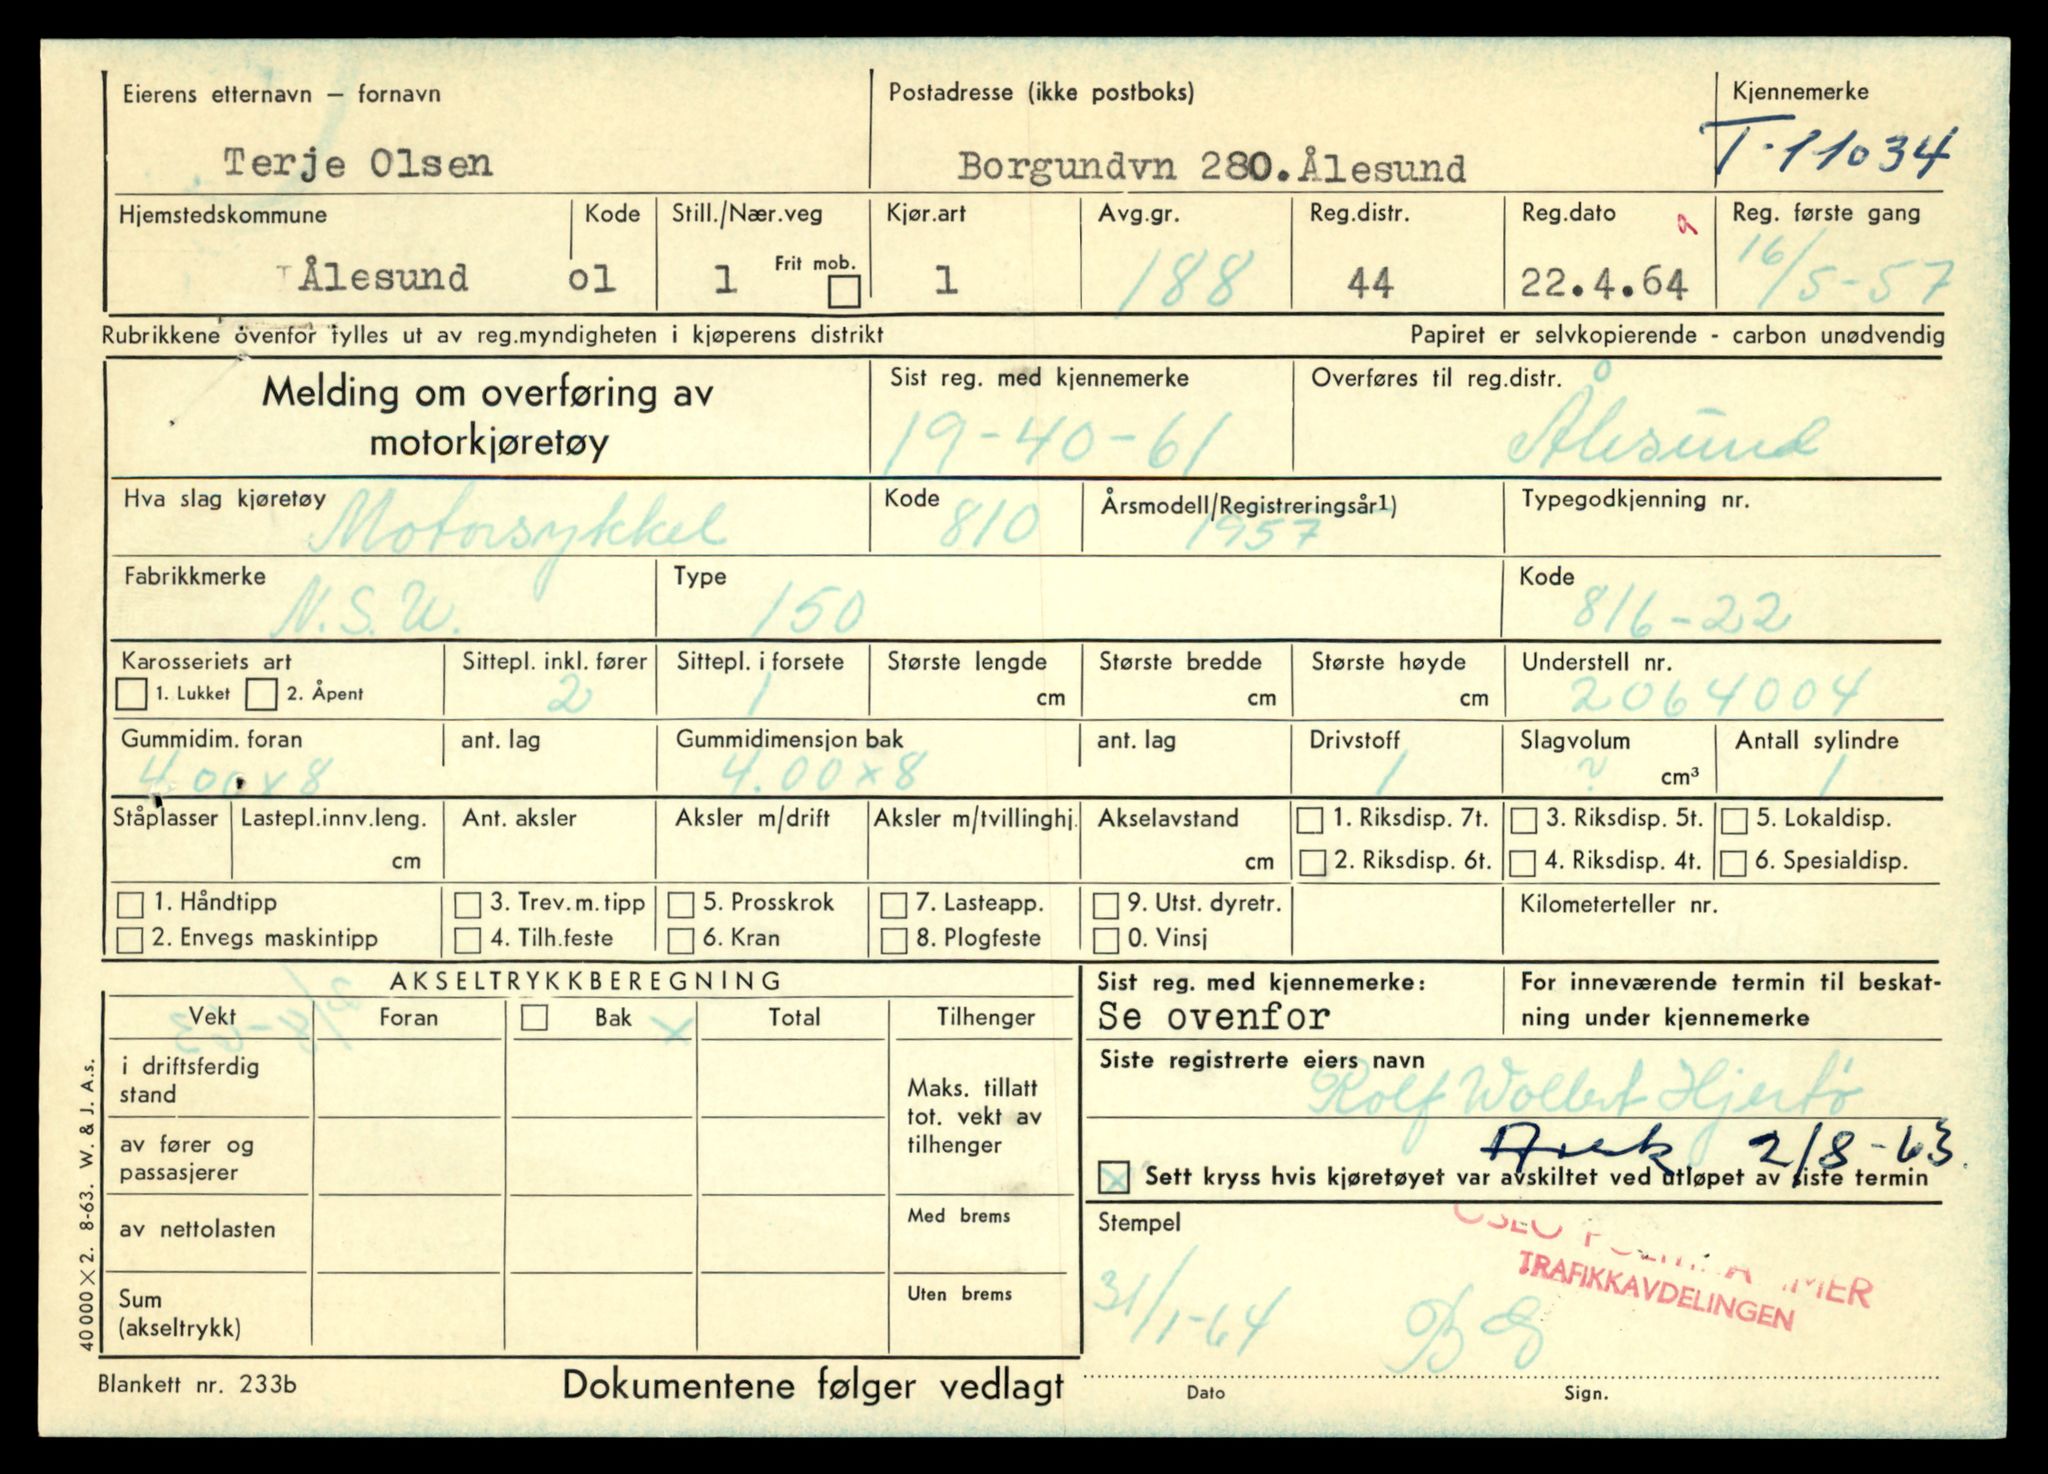 Eierens etternavn — fornavn Postadresse (ikke postboks) Kjennemerke
Terje Olsen Borgundvn 280. Ålesund T-11034
Hjemstedskommune Kode Still./Nær.veg Kjør.art Avg.gr. Reg.distr. Reg.dato Reg. første gang
Frit mob.
Ålesund ol 1 1 188 44 22.4.64 16/5-57
Rubrikkene ovenfor fylles ut av reg.myndigheten i kjøperens distrikt Papiret er selvkopierende - carbon unødvendig
Melding om overføring av motorkjøretøy Sist reg. med kjennemerke Overføres til reg.distr.
19-40-61 Ålesund
Hva slag kjøretøy Kode Årsmodell/Registreringsår1) Typegodkjenning nr.
Motorsykkel 810 1957
Fabrikkmerke Type Kode
N.S.U. 150 816-22
Karosseriets art Sittepl. inkl. fører Sittepl. i forsete Største lengde Største bredde Største høyde Understell nr.
1. Lukket 2. Åpent 2 1 cm cm cm 2064004
Gummidim. foran ant. lag Gummidimensjon bak ant. lag Drivstoff Slagvolum Antall sylindre
4.00x8 4.00x8 1 ? cm³ 1
Ståplasser Lastepl.innv.leng. Ant. aksler Aksler m/drift Aksler m/tvillinghj. Akselavstand 1. Riksdisp. 7t. 3. Riksdisp. 5t. 5. Lokaldisp.
cm cm 2. Riksdisp. 6t. 4. Riksdisp. 4t. 6. Spesialdisp.
1. Håndtipp 3. Trev. m. tipp 5. Prosskrok 7. Lasteapp. 9. Utst. dyretr. Kilometerteller nr.
2. Envegs maskintipp 4. Tilh.feste 6. Kran 8. Plogfeste 0. Vinsj
AKSELTRYKKBEREGNING Sist reg. med kjennemerke: For inneværende termin til beskat-
Vekt Foran Bak x Total Tilhenger Se ovenfor ning under kjennemerke
i driftsferdig stand Maks. tillatt tot. vekt av tilhenger Siste registrerte eiers navn
Rolf Wollert Hjertø
av fører og passasjerer 2/8-63.
x Sett kryss hvis kjøretøyet var avskiltet ved utløpet av siste termin
av nettolasten Med brems Stempel
OSLO POLITIKAMMER
TRAFIKKAVDELINGEN
Sum (akseltrykk) Uten brems 31/1-64
Blankett nr. 233b Dokumentene følger vedlagt Dato Sign.
40 000 X 2. 8-63. W. & J. A.s.